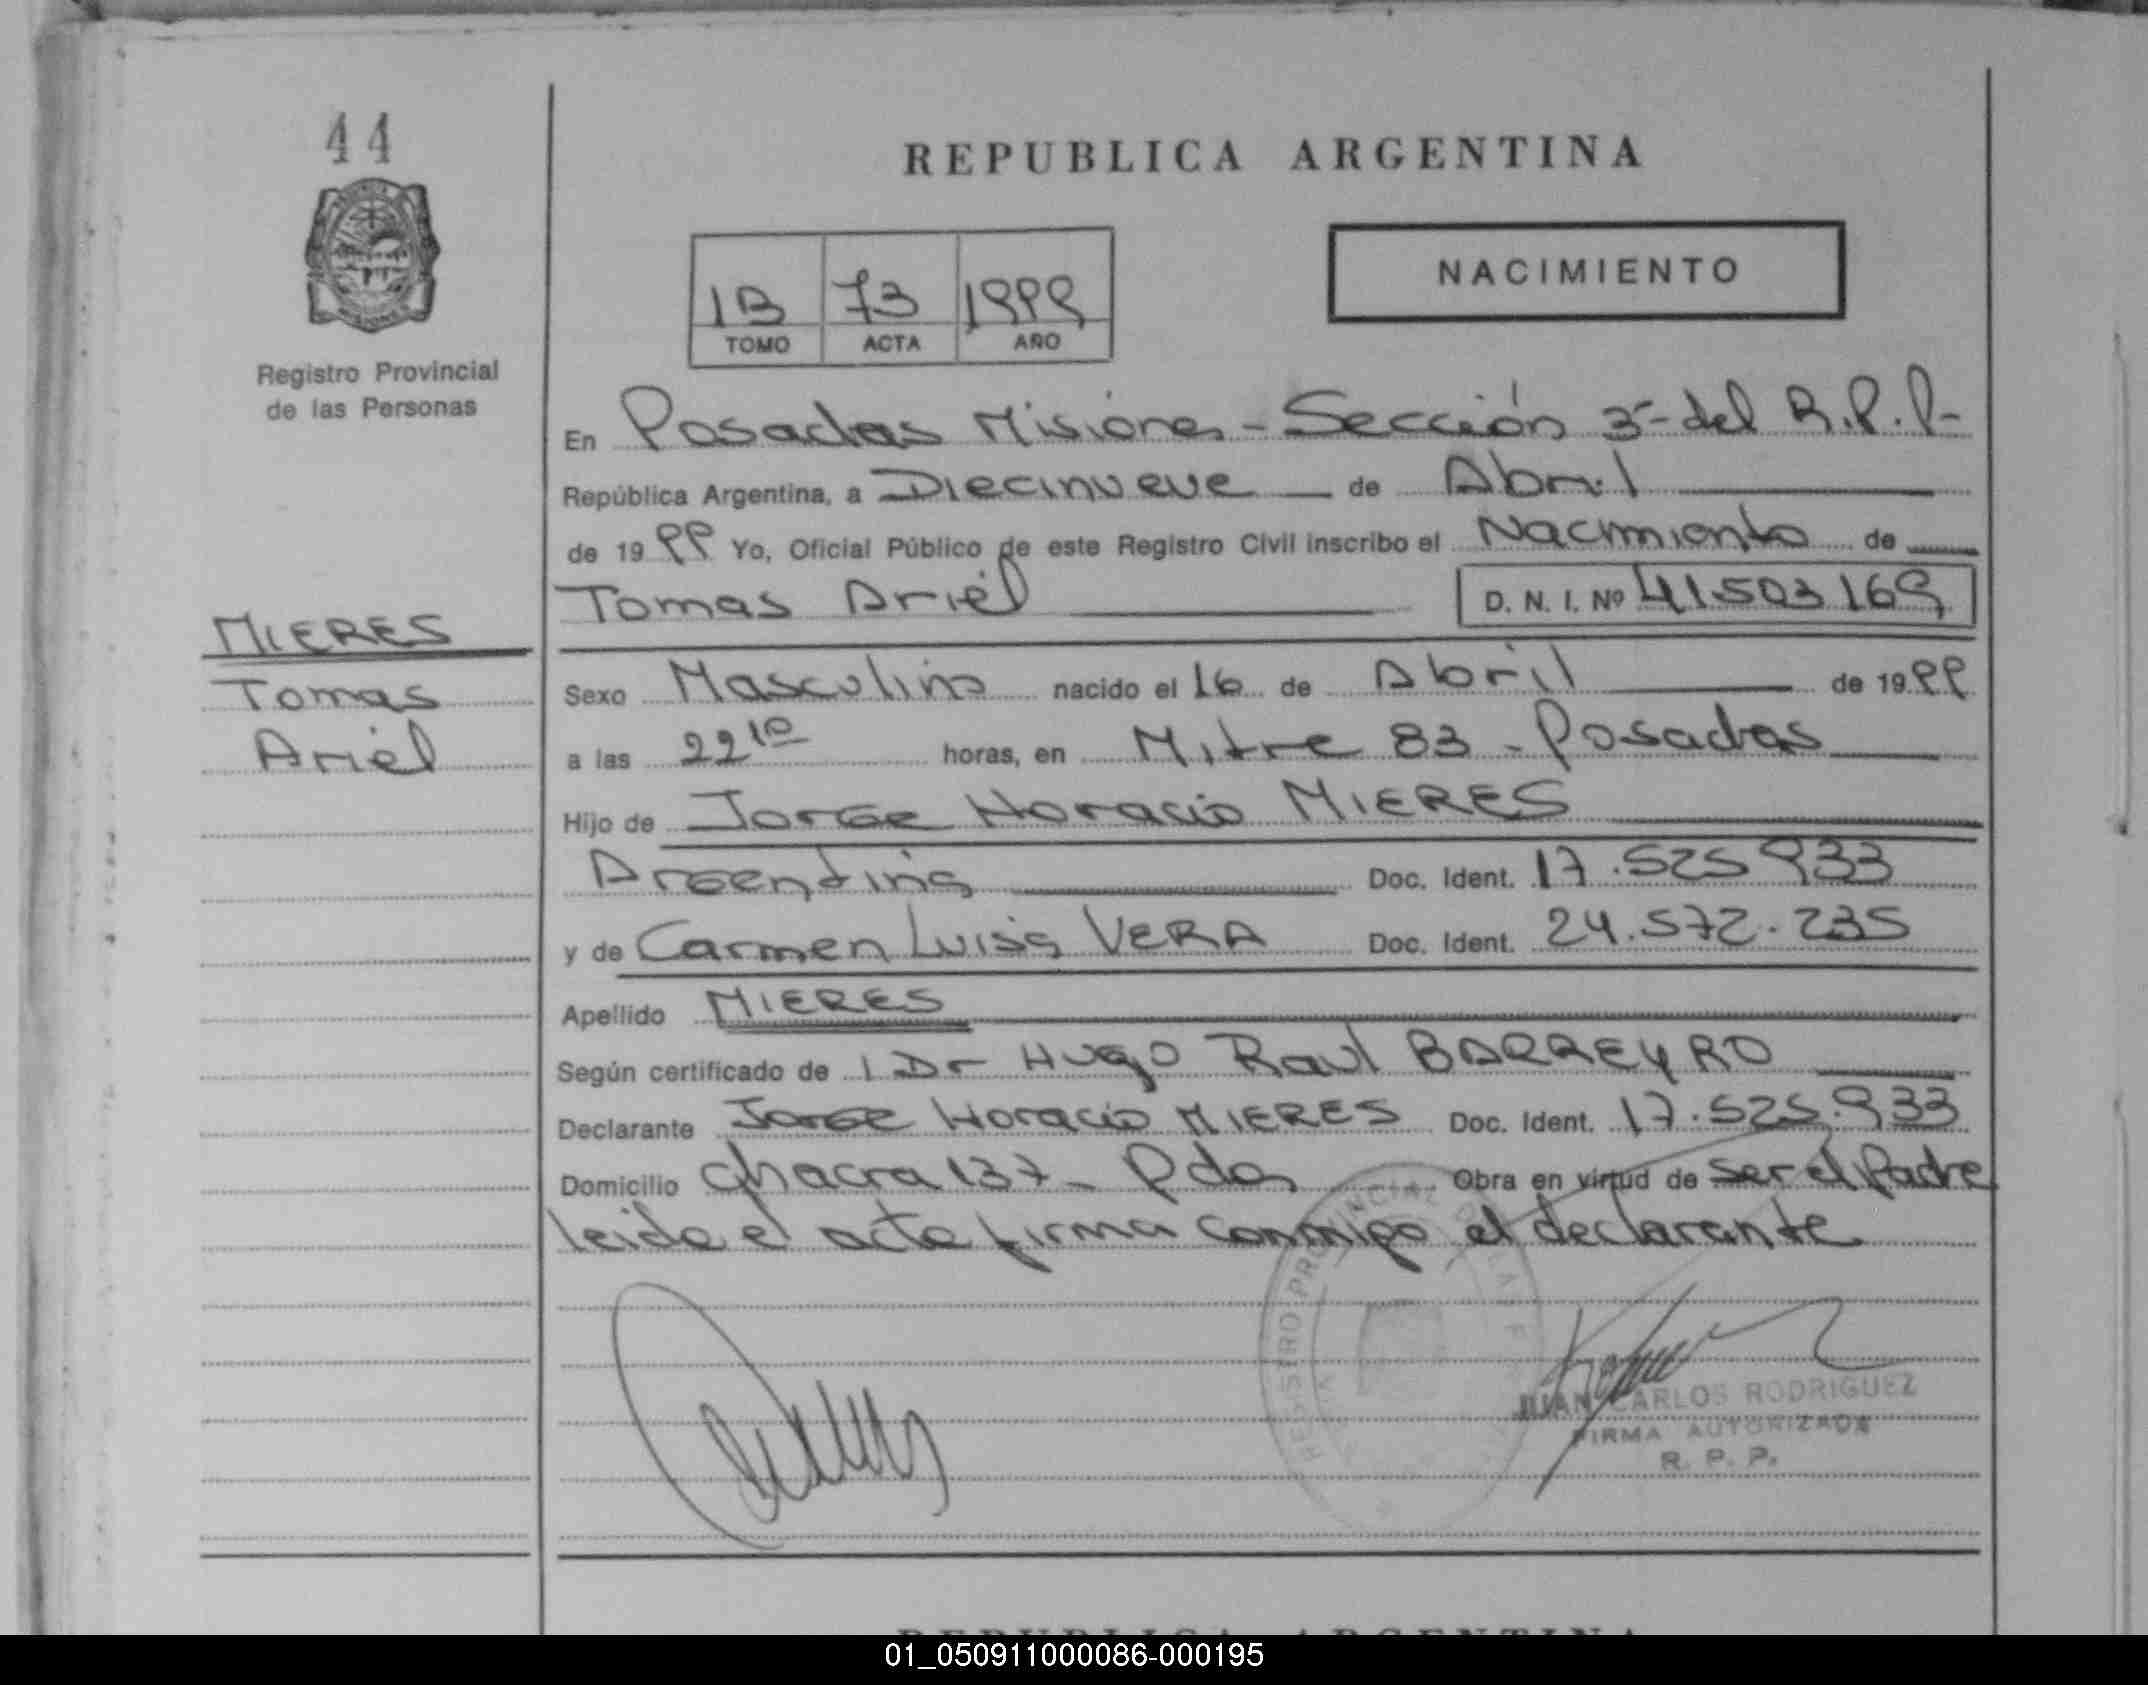 44
REPUBLICA ARGENTINA
NACIMIENTO
1B 73 1999
TOMO ACTA AÑO
Registro Provincial
de las Personas
En Posadas Misiones - Sección 3ª del R.P.P-
República Argentina, a Diecinueve de Abril
de 1999 Yo, Oficial Público de este Registro Civil inscribo el Nacimiento de
Tomas Ariel D. N. I. Nº 41.503169
MIERES
Tomas
Ariel
Sexo Masculino nacido el 16 de Abril de 1999
a las 22 10 horas, en Mitre 83 - Posadas
Hijo de Jorge Horacio MIERES
Argentina Doc. Ident. 17.525933
y de Carmen Luisa VERA Doc. Ident. 24.572.235
Apellido MIERES
Según certificado de 1 Dr Hugo Raul BARREYRO
Declarante Jorge Horacio MIERES Doc. Ident. 17.525.933
Domicilio Chacra 137 - Pdas Obra en virtud de ser el Padre
leida el acta firma conmigo el declarante
REGISTRO PROVINCIAL DE LAS
JUAN CARLOS RODRIGUEZ
FIRMA AUTORIZADA
R. P. P.
REPUBLICA ARGENTINA
01_050911000086-000195